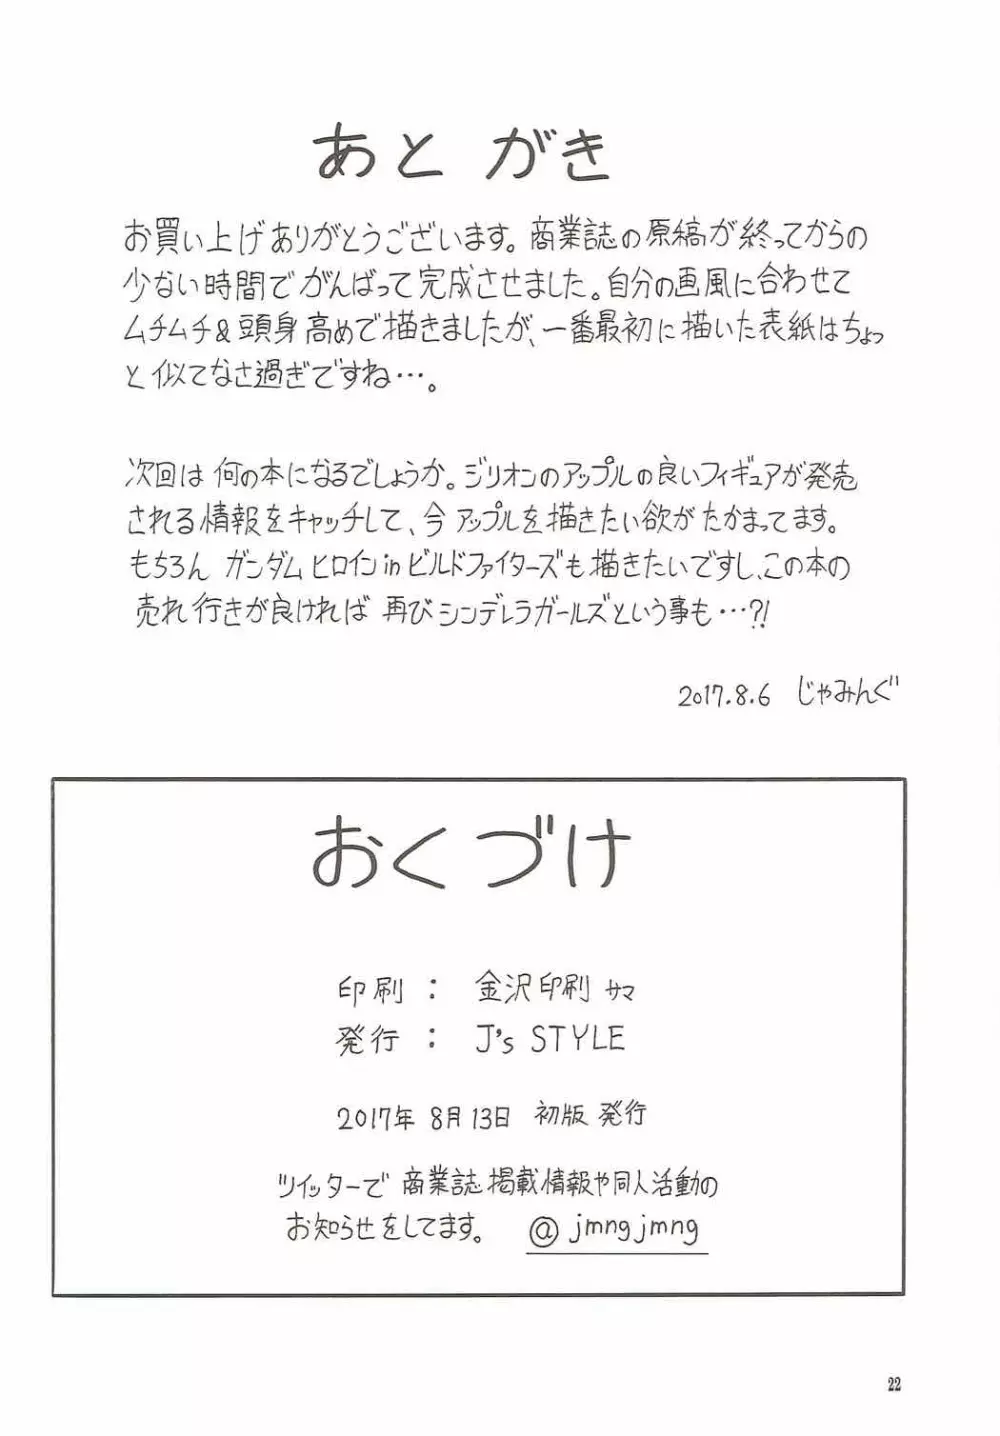 あとがき
お買い上げありがとうございます。商業誌の原稿が終ってからの
少ない時間でがんばって完成させました。自分の画風に合わせて
ムチムチ&頭身高めで描きましたが、一番最初に描いた表紙はちょっ
と似てなさ過ぎですね…。
次回は何の本になるでしょうか。ジリオンのアップルの良いフィギュアが発売
される情報をキャッチして、今アップルを描きたい欲がたかまってます。
もちろん ガンダムヒロインinビルドファイターズも描きたいですし、この本の
売れ行きが良ければ 再びシンデレラガールズという事も…?!
2017.8.6 じゃみんぐ
おくづけ
印刷 : 金沢印刷 サマ
発行 : J's STYLE
2017年 8月13日 初版発行
ツイッターで 商業誌掲載情報や同人活動の
お知らせをしてます。 @jmngjmng
22